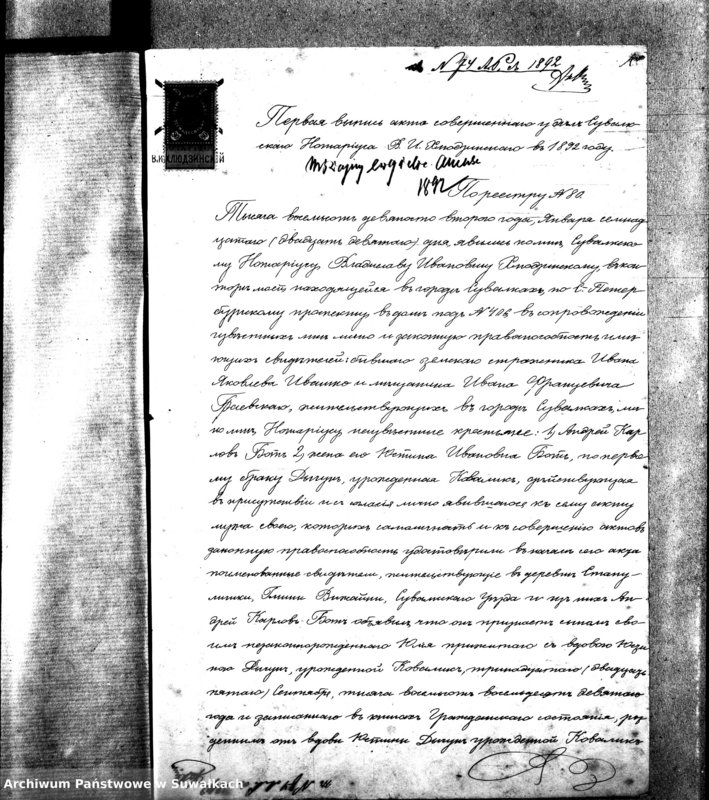 № 74 1892
Первая выпись акта совершеннаго у Сувалк-
скаго Нотаріуса В. И. Хлюдзинскаго въ 1892 году.
В. ХЛЮДЗИНСКІЙ
1892
По реестру № 80.
Тысяча восемьсотъ девяносто второго года, Января семнад-
цатаго (двадцать девятаго) дня, явились ко мнѣ, Сувалкско-
му Нотаріусу, Владиславу Ивановичу Хлюдзинскому, въ кон-
торѣ моей находящейся въ городѣ Сувалкахъ, по С. Петер-
бургскому проспекту, въ домѣ подъ № 406, въ сопровожденіи
извѣстныхъ мнѣ лично и законную правоспособность имѣ-
ющихъ свидѣтелей: бывшаго земскаго стражника Ивана
Яковлева Ивашко и мѣщанина Ивана Францевича
жительствующихъ въ городѣ Сувалкахъ, мнѣ
Нотаріусу неизвѣстные крестьяне: 1) Андрей Кар-
ловъ Ботъ 2) жена его Ивановна Ботъ, по перво-
му браку Дычунъ, урожденная Коваликъ, дѣйствующая
въ присутствіи и съ согласія лично явившагося къ сему акту
мужа своего, которыхъ самоличность и къ совершенію актовъ
законную правоспособность удостовѣрили въ началѣ сего акта
поименованные свидѣтели, жительствующіе въ деревнѣ
Гмины Вижайны, Сувалкскаго Уѣзда и изъ нихъ Ан-
дрей Карловъ Ботъ объявилъ что онъ признаетъ сыномъ сво-
имъ незаконнорожденнаго Юлія прижитаго съ вдовою
Дычунъ, урожденной Коваликъ, тринадцатаго (двадцать
пятаго) Сентября, тысяча восемьсотъ восемьдесятъ девятаго
года и записаннаго въ книгахъ Гражданскаго состоянія, ро-
жденнымъ отъ вдовы Дычунъ урожденной Коваликъ
Archiwum Państwowe w Suwałkach